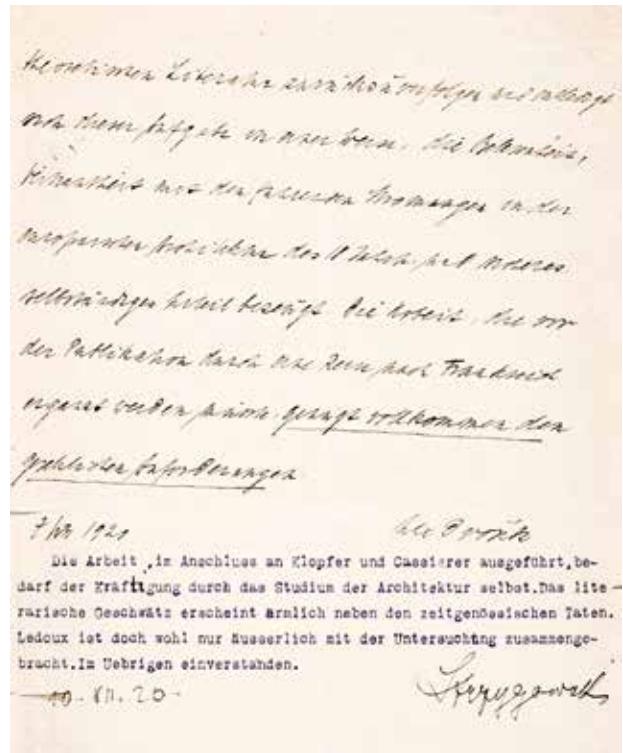 Literatur zurückzuverfolgen und
sich dieser Aufgabe in einer Weise, die Belesenheit,
Vertrautheit mit den führenden Stromungen in der
europaischen Architektur des
selbständiger Arbeit bezeugt. Die Arbeit, die vor
der Publikation durch eine Reise nach Frankreich
ergänzt werden müsste genügt vollkommen den
gesetzlichen Anforderungen
1920 Max Dvořák
Die Arbeit, im Anschluss an Klopfer und Cassierer ausgeführt, be-
darf der Kräftigung durch das Studium der Architektur selbst. Das lite-
rarische Geschwätz erscheint ärmlich neben den zeitgenössischen Taten.
Ledoux ist doch wohl nur äusserlich mit der Untersuchung zusammenge-
bracht. Im Uebrigen einverstanden.
10. XII. 20 Strzygowski